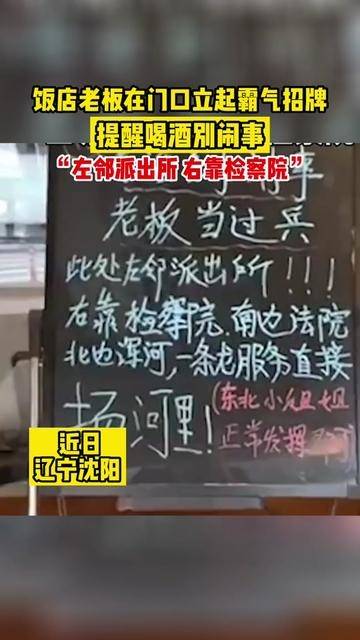 饭店老板在门口立起霸气招牌
提醒喝酒别闹事
“左邻派出所 右靠检察院”
老板当过兵
此处左邻派出所!!!
右靠检察院,南边法院
北边浑河,一条龙服务直接
扬河里!
(东北小姐姐
正常发挥
近日
辽宁沈阳